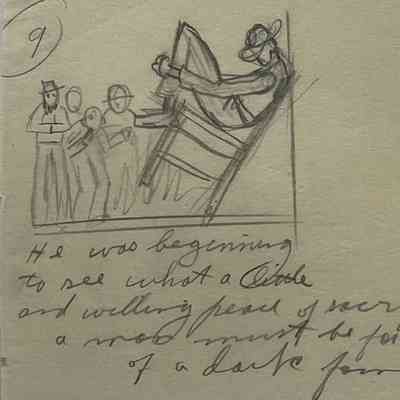 9
He was beginning
to see what a little
and willing peace of
a man must be
of a dark